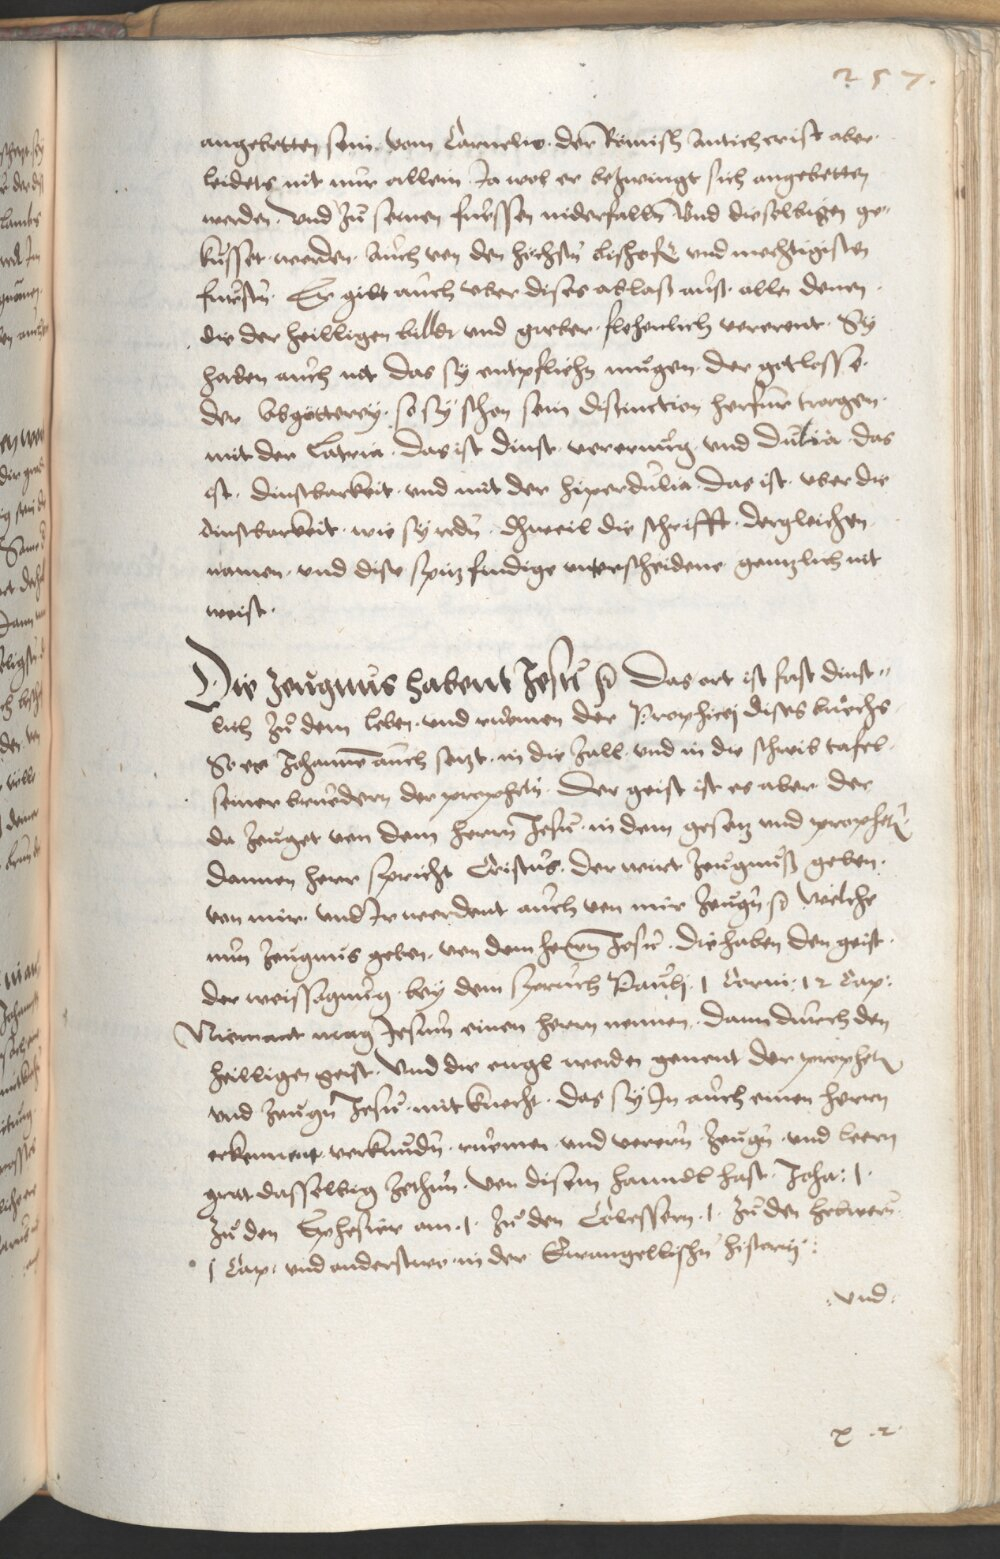 257.
angebetten sein. vom Cornelio. der Römisch Antichcrist aber
leidets nit nur allein Ja wol er bezwingt sich angebetten
werden. Vnd zu seinen fuessen niderfalln Vnd dieselbigen ge„
küsset werden. Auch von den höchstn bishofen vnd mechtigisten
fürstn. Er gibt auch vber dises ablass auss. allen denen
die der heilligen bilder vnd greber flehenlich vererent. Sy
haben auch nit das sy entpfliehn mugen. der gotlosse.
der Abgötterey. so sy schon sein distinction herfür tragen.
mit der Latria. Das ist dinst vererung. vnd Dulia das
ist. dinstbarkeit. vnd mit der hiperdulia. Das ist. vber die
dinstbarkeit. wie sy redn. dhweil die schrifft. dergleichen
namen. vnd dise spitzfindige vnterscheidene gentzlich nit
weist.
Die zeugnus habent Jesu Das ort ist fast dinst„
lich zu dem leben. vnd ruemen der Prophicej dises buechs
So er Johannem auch setzt. in die Zall. vnd in die schreib tafel.
seiner bruedern der prophetn. Der geist ist es aber. der
da Zeuget von dem herrn Jesu. in dem gesetz vnd propheten
dannen herr spricht Cristus. der wirt Zeugnuss geben.
von mir. vnd Ir werdent auch von mir Zeugn Welche
nun Zeugnus geben. von dem herrn Jesu. die haben den geist.
der weissagung. bey dem spruch Paulj. 1 Corin: 12 Cap:
Niemant mag Jesum einen herrn nennen. Dann durch den
heilligen geist. Vnd die engl werden genent der propheten
vnd Zeugn Jesu. mit knecht. das sy In auch einen herrn
erkennent. verkundn. ruemen. vnd verern. Zeugn. vnd leern
grat dasselbig Zethun. Von disem hanndl hast. Joha: 1.
zu den Ephesier am .1. zu den Colessern .1. zu den hebreern.
1 Cap: vnd anderstwo in der Ewangellischn historij:
.vnd.
x .2.